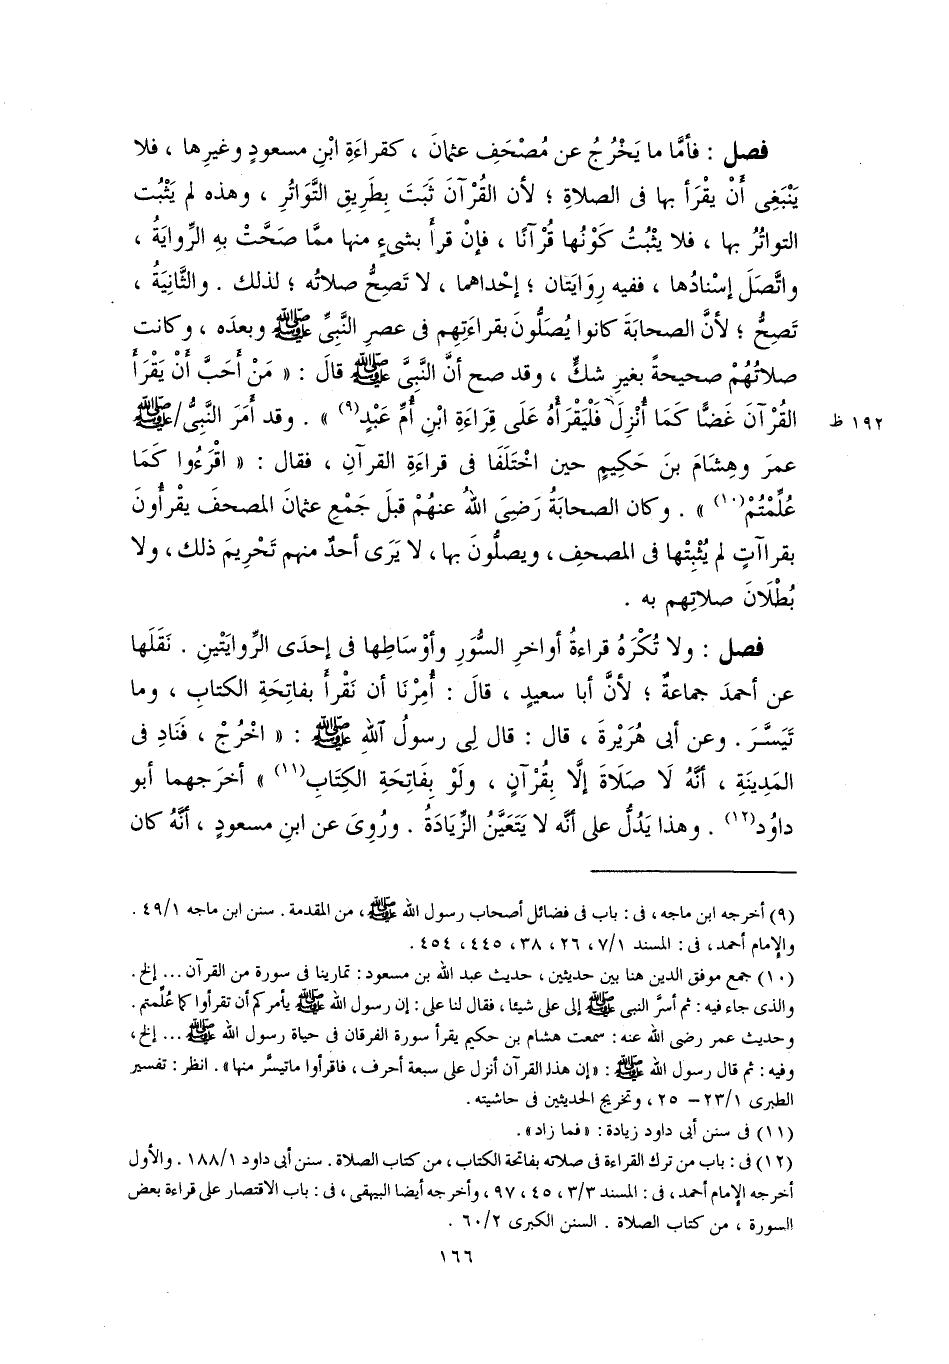 فصل : فأمَّا ما يَخْرُجُ عن مُصْحَفِ عثمانَ ، كقراءَةِ ابْنِ مسعودٍ وغيرِها ، فلا
يَنْبَغِى أَنْ يقْرأ بها فى الصلاةِ ؛ لأن القُرْآنَ ثَبَتَ بِطَرِيقِ التَّواتُرِ ، وهذه لم يَثْبُت
التواتُرُ بها ، فلا يثْبُتُ كَوْنُها قُرْآنًا ، فإنْ قرأ بشىءٍ منها ممَّا صَحَّتْ بهِ الرِّوايَةُ ،
واتَّصَلَ إسْنادُها ، ففيه رِوَايَتان ؛ إحْداهما ، لا تَصِحُّ صلاتُه ؛ لذلك . والثَّانِيَةُ ،
تَصِحُّ ؛ لأنَّ الصحابَةَ كانوا يُصَلُّونَ بقراءَتِهم فى عصرِ النَّبِىِّ ﷺ وبعدَه ، وكانت
صلاتُهُمْ صحيحةً بغيرِ شكٍّ ، وقد صح أنَّ النَّبِىَّ ﷺ قالَ : « مَنْ أَحَبَّ أَنْ يَقْرَأَ
القُرْآنَ غَضًّا كَمَا أُنْزِلَ فَلْيَقْرَأْهُ عَلَى قِرَاءَةِ ابْنِ أُمِّ عَبْدٍ(٩) » . وقد أَمَرَ النَّبِىُّ/ﷺ ١٩٢ ظ
عمرَ وهِشَامَ بنَ حَكِيمٍ حين اخْتَلَفَا فى قراءَةِ القرآنِ ، فقال : « اقْرَءُوا كَمَا
عُلِّمْتُمْ(١٠) » . وكان الصحابَةُ رَضِىَ اللهُ عنهُمْ قبلَ جَمْعِ عثمانَ المصحفَ يقْرأُونَ
بقراآتٍ لم يُثْبِتْها فى المصحفِ، ويصلُّونَ بها، لا يَرَى أحدٌ منهم تَحْرِيمَ ذلك، ولا
بُطْلَانَ صلاتِهم به .
فصل : ولا تُكْرَهُ قراءةُ أواخرِ السُّوَرِ وأوْسَاطِها فى إحدَى الرِّوايَتْينِ . نَقَلَها
عن أحمدَ جماعةٌ ؛ لأنَّ أبا سعيدٍ ، قالَ : أُمِرْنَا أن نَقْرأَ بفاتِحَةِ الكتابِ ، وما
تَيَسَّرَ . وعن أبى هُرَيْرةَ ، قال : قال لِى رسولُ اللهِ ﷺ : « اخْرُجْ ، فَنَادِ فى
المَدِينَةِ ، أنَّهُ لَا صَلَاةَ إلَّا بِقُرْآنٍ ، ولَوْ بِفَاتِحَةِ الكِتَابِ(١١) » أخرَجهما أبو
داوُد(١٢) . وهذا يَدُلُّ على أنَّه لا يَتَعَيَّنُ الزِّيَادَةُ . ورُوِىَ عن ابنِ مسعودٍ ، أنَّهُ كان
(٩) أخرجه ابن ماجه، فى : باب فى فضائل أصحاب رسول الله ﷺ، من المقدمة . سنن ابن ماجه ٤٩/١ .
والإمام أحمد، فى : المسند ٧/١، ٢٦، ٣٨، ٤٤٥، ٤٥٤ .
(١٠) جمع موفق الدين هنا بين حديثين، حديث عبد الله بن مسعود : تمارينا فى سورة من القرآن ... إلخ .
والذى جاء فيه : ثم أسرَّ النبى ﷺ إلى على شيئا، فقال لنا على : إن رسول الله ﷺ يأمركم أن تقرأوا كما عُلِّمتم .
وحديث عمر رضى الله عنه : سمعت هشام بن حكيم يقرأ سورة الفرقان فى حياة رسول الله ﷺ ... إلخ،
وفيه : ثم قال رسول الله ﷺ : «إن هذا القرآن أنزل على سبعة أحرف، فاقرأوا ماتيسَّر منها» . انظر : تفسير
الطبرى ٢٣/١ – ٢٥، وتخريج الحديثين فى حاشيته .
(١١) فى سنن أبى داود زيادة : «فما زاد» .
(١٢) فى : باب من ترك القراءة فى صلاته بفاتحة الكتاب، من كتاب الصلاة . سنن أبى داود ١٨٨/١ . والأول
أخرجه الإمام أحمد، فى : المسند ٣/٣، ٤٥، ٩٧، وأخرجه أيضا البيهقى، فى : باب الاقتصار على قراءة بعض
السورة ، من كتاب الصلاة . السنن الكبرى ٦٠/٢ .
١٦٦